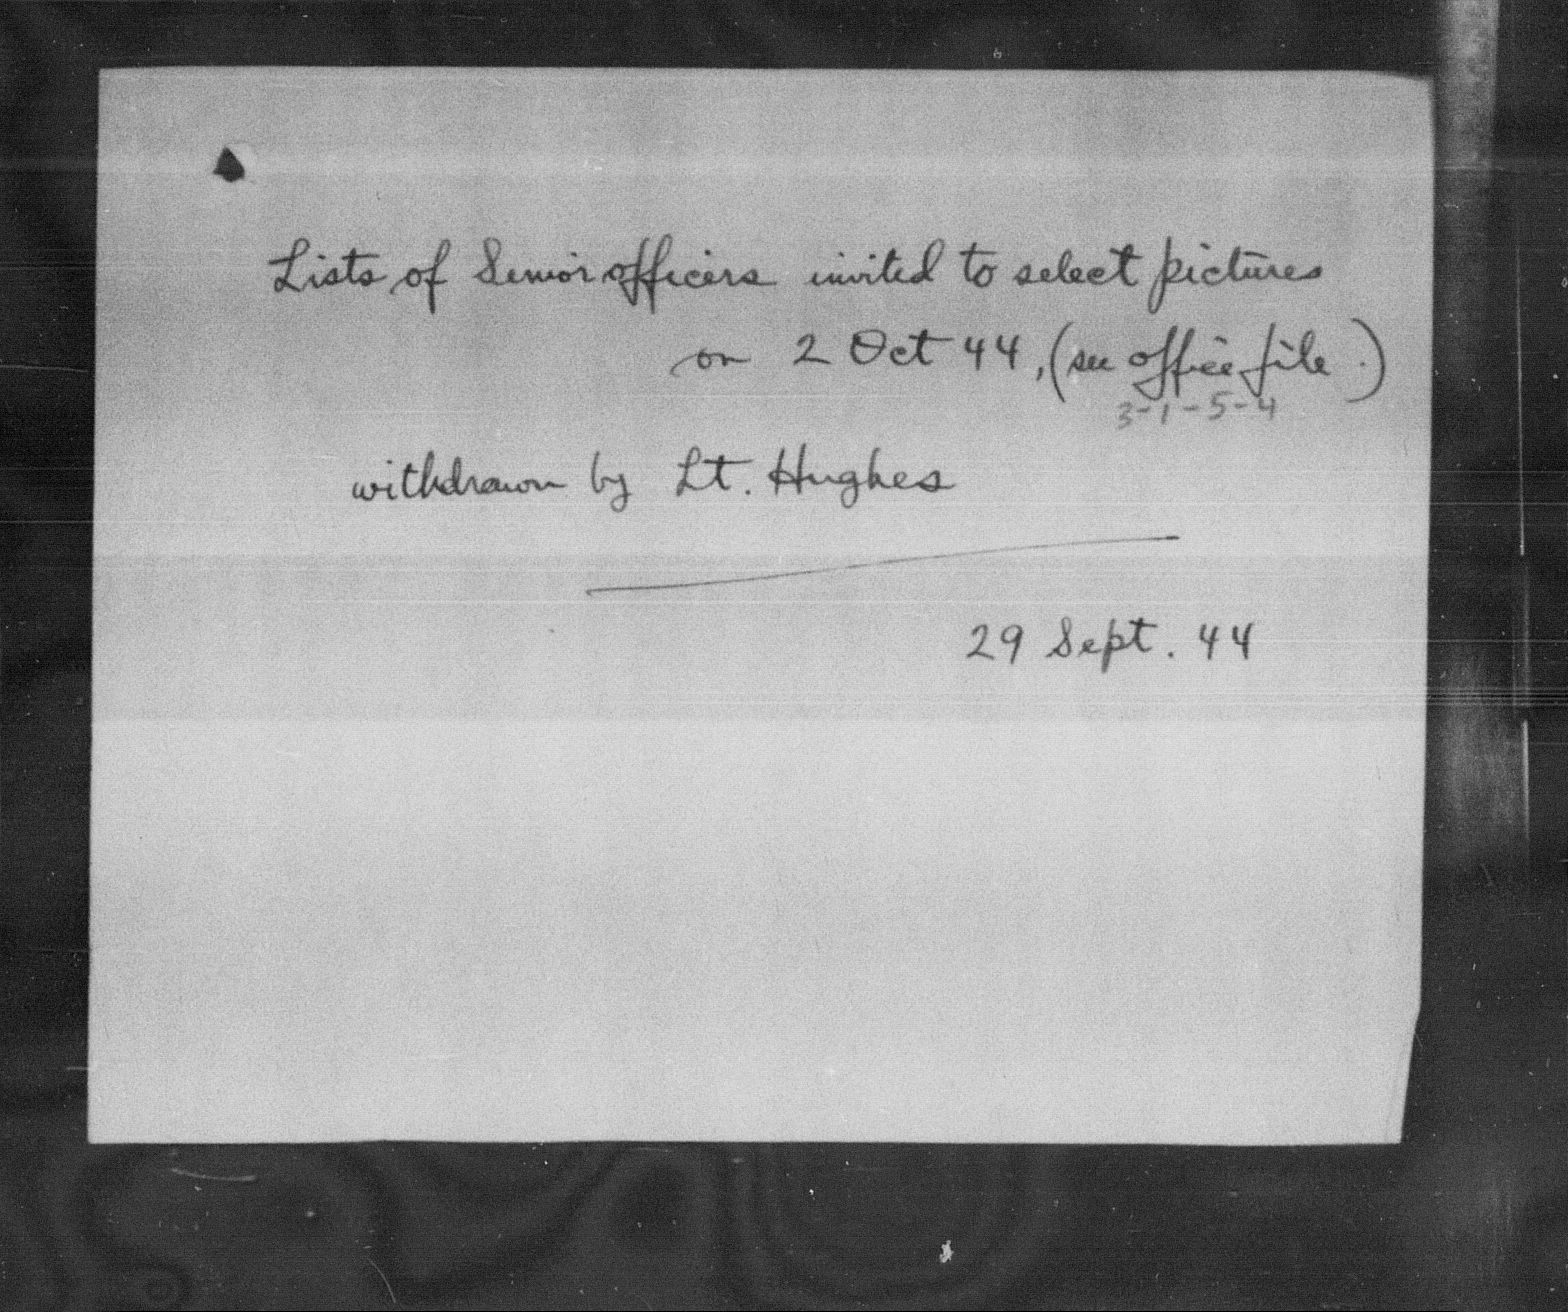 Lists of Senior officers invited to select pictures
on 2 Oct 44, (see office file.)
3-1-5-4
withdrawn by Lt. Hughes
29 Sept. 44